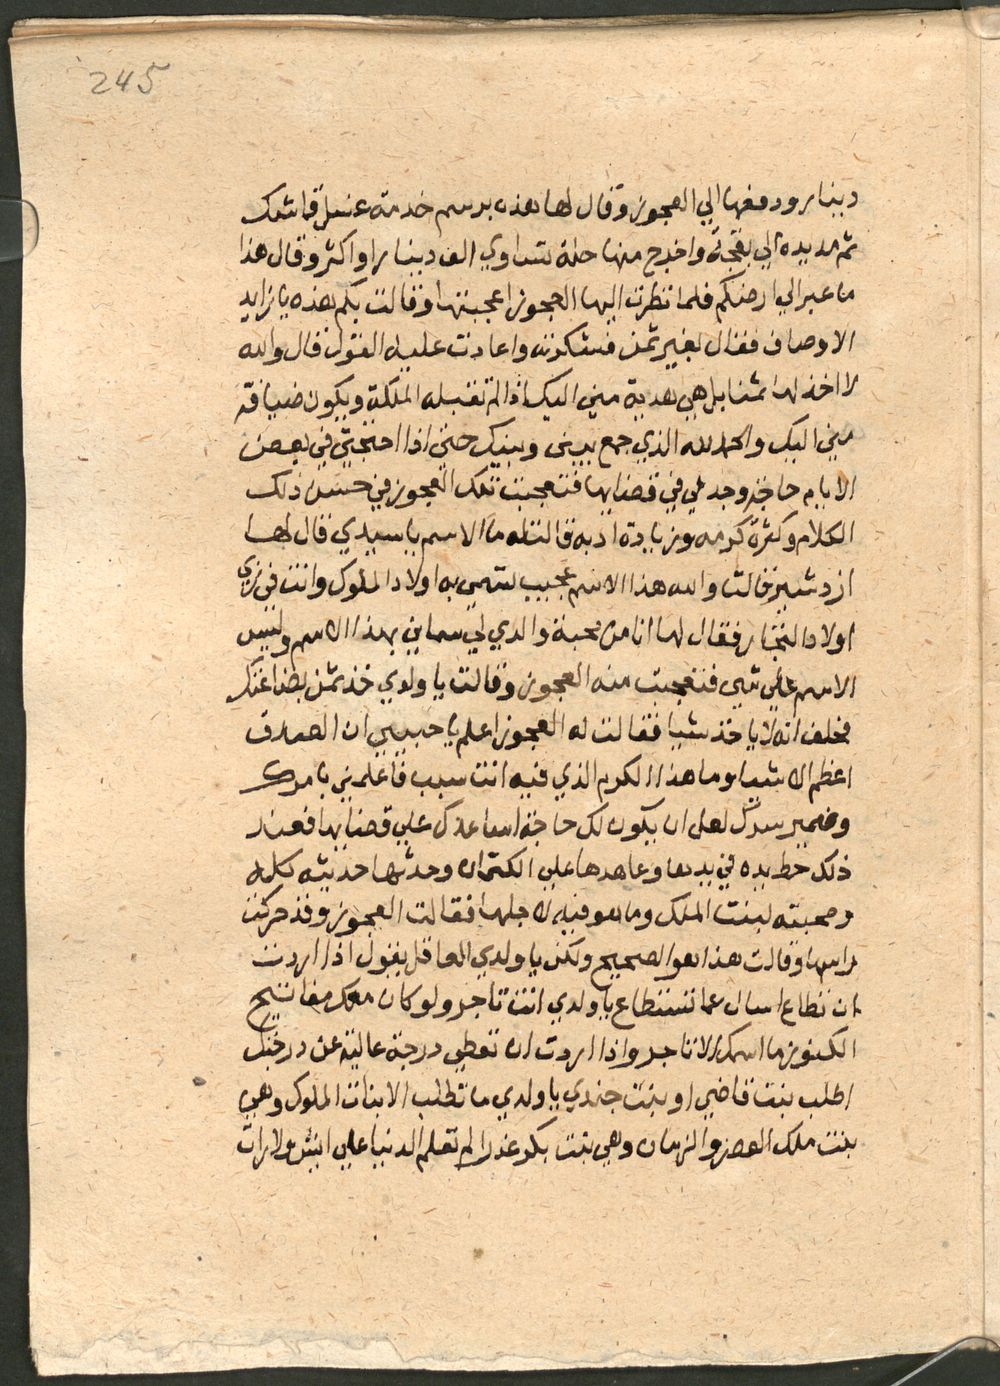 245
دينار ودفعها الي العجوز وقال لها هذه برسم خدمة غسل قماشك
ثم مد يده الي بقجة واخرج منها حلة تساوي الف دينار او اكثر وقال هذا
ما عبر الي ارضكم فلما نظرت اليها العجوز اعجبتها وقالت بكم هذه يا زايد
الاوصاف فقال بغير ثمن فشكرته واعادت عليه القول فقال والله
لا اخذ لها ثمنا بل هي هدية مني اليك اذا لم تقبله الملكة ويكون ضيافة
مني اليك والحمد لله الذي جمع بيني وبينك حتي اذا احتجتي في بعض
الايام حاجة وجدتي في قضايها فتعجبت تلك العجوز في حسن ذلك
الكلام وكثرة كرمه وزيادة ادبه فقالت له ما الاسم يا سيدي قال لها
ازدشير فقالت والله هذا الاسم عجيب تسمي به اولاد الملوك وانت في زي
اولاد التجار فقال لها انا من محبة والدي لي سماني بهذا الاسم وليس
الاسم علي شي فتعجبت منه العجوز وقالت يا ولدي خذ ثمن بضاعتك
فحلف انه لا ياخذ شيا فقالت له العجوز اعلم يا حبيبي ان الصدق
اعظم الاشيا وما هذا الكرم الذي فيه انت سبب فاعلمني بامرك
وضمير سرك لعل ان يكون لك حاجة اساعدك علي قضايها فعند
ذلك حط يده في يدها وعاهدها علي الكتمان وحدثها حديثه كله
ومحبته لبنت الملك وما هو فيه لاجلها فقالت العجوز وقد حركت
راسها وقالت هذا هو الصحيح ولكن يا ولدي العاقل يقول اذا اردت
ان تطاع اسال عما تستطاع يا ولدي انت تاجر ولو كان معك مفاتيح
الكنوز ما اسمك الا تاجر واذا اردت ان تعطي درجة عالية عن درجتك
اطلب بنت قاضي او بنت جندي يا ولدي ما تطلب الا بنات الملوك وهي
بنت ملك العصر والزمان وهي بنت بكر عذرا لم تعلم الدنيا علي ايش ولا رات